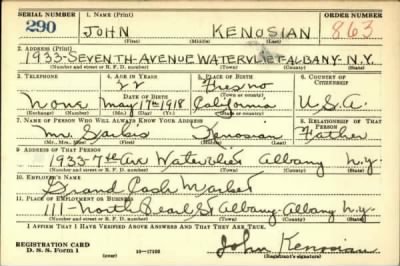 SERIAL NUMBER 1. NAME (Print) ORDER NUMBER
290 JOHN KENOSIAN 863
(First) (Middle) (Last)
2. ADDRESS (Print)
1933-SEVENTH-AVENUE WATERVLIET-ALBANY-N.Y.
(Number and street or R. F. D. number) (Town) (County) (State)
3. TELEPHONE 4. AGE IN YEARS 5. PLACE OF BIRTH 6. COUNTRY OF CITIZENSHIP
22 Fresno
DATE OF BIRTH (Town or county)
None May 17th 1918 California U.S.A.
(Exchange) (Number) (Mo.) (Day) (Yr.) (State or country)
7. NAME OF PERSON WHO WILL ALWAYS KNOW YOUR ADDRESS 8. RELATIONSHIP OF THAT PERSON
Mr. Sarkis Kenosian Father
(Mr., Mrs., Miss) (First) (Middle) (Last)
9. ADDRESS OF THAT PERSON
1933-7th Ave Watervliet Albany N.Y.
(Number and street or R. F. D. number) (Town) (County) (State)
10. EMPLOYER'S NAME
Grand Cash Market
11. PLACE OF EMPLOYMENT OR BUSINESS
111-North Pearl St Albany-Albany N.Y.
(Number and street or R. F. D. number) (Town) (County) (State)
I AFFIRM THAT I HAVE VERIFIED ABOVE ANSWERS AND THAT THEY ARE TRUE.
REGISTRATION CARD
D. S. S. Form 1 16-17105 John Kenosian
(Registrant's signature)